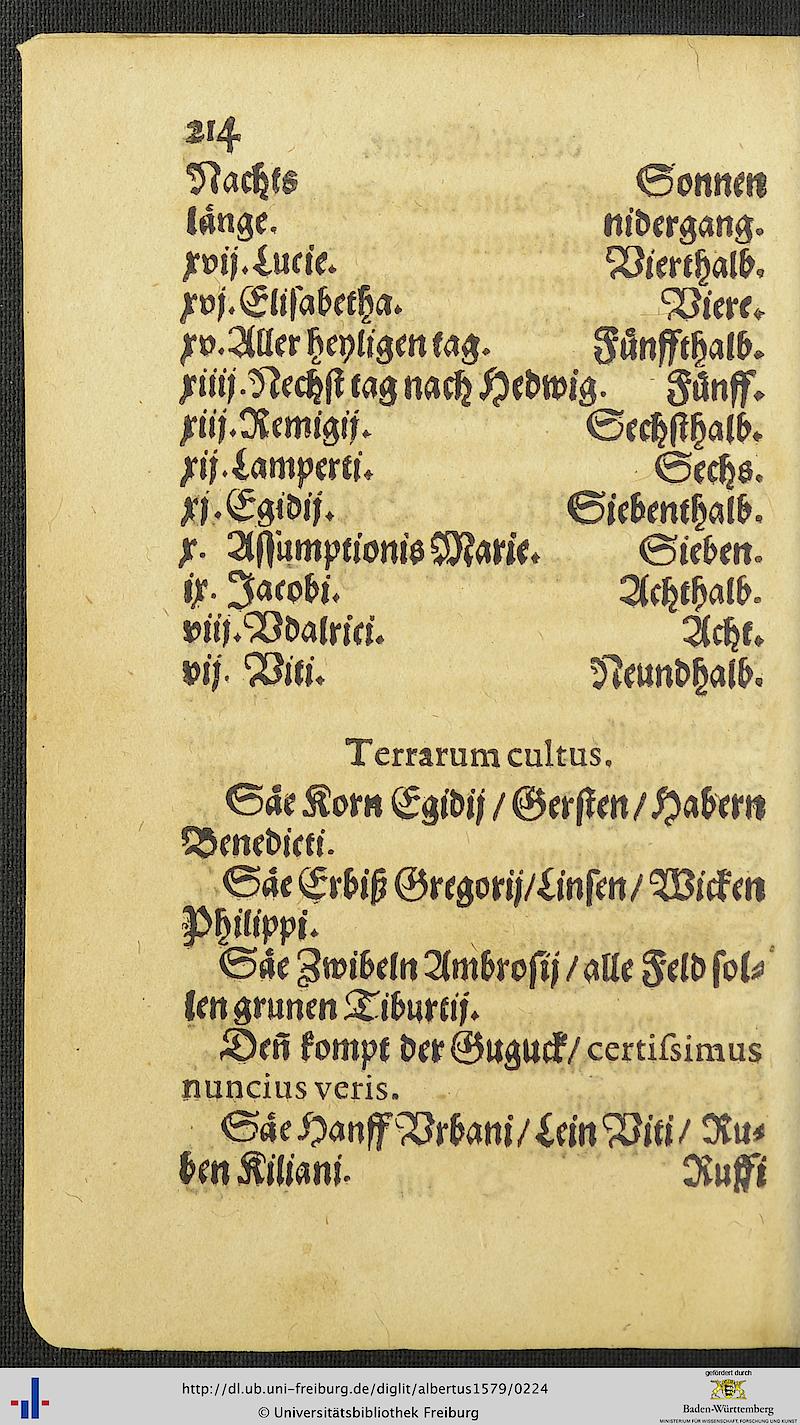 214
Nachts Sonnen
länge. nidergang.
xvij. Lucie. Vierthalb.
xvj. Elisabetha. Viere.
xv. Aller heyligen tag. Fünffthalb.
xiiij. Nechst tag nach Hedwig. Fünff.
xiij. Remigij. Sechsthalb.
xij. Lamperti. Sechs.
xj. Egidij. Siebenthalb.
x. Assumptionis Marie. Sieben.
ix. Jacobi. Achthalb.
viij. Vdalrici. Acht.
vij. Viti. Neundhalb.
Terrarum cultus.
Säe Korn Egidij / Gersten / Habern
Benedicti.
Säe Erbiß Gregorij / Linsen / Wicken
Philippi.
Säe Zwibeln Ambrosij / alle Feld sol⸗
len grunen Tiburtij.
Deñ kompt der Guguck / certiſsimus
nuncius veris.
Säe Hanff Vrbani / Lein Viti / Ru⸗
ben Kiliani. Ruffi
http://dl.ub.uni-freiburg.de/diglit/albertus1579/0224
© Universitätsbibliothek Freiburg
gefördert durch
Baden-Württemberg
MINISTERIUM FÜR WISSENSCHAFT, FORSCHUNG UND KUNST